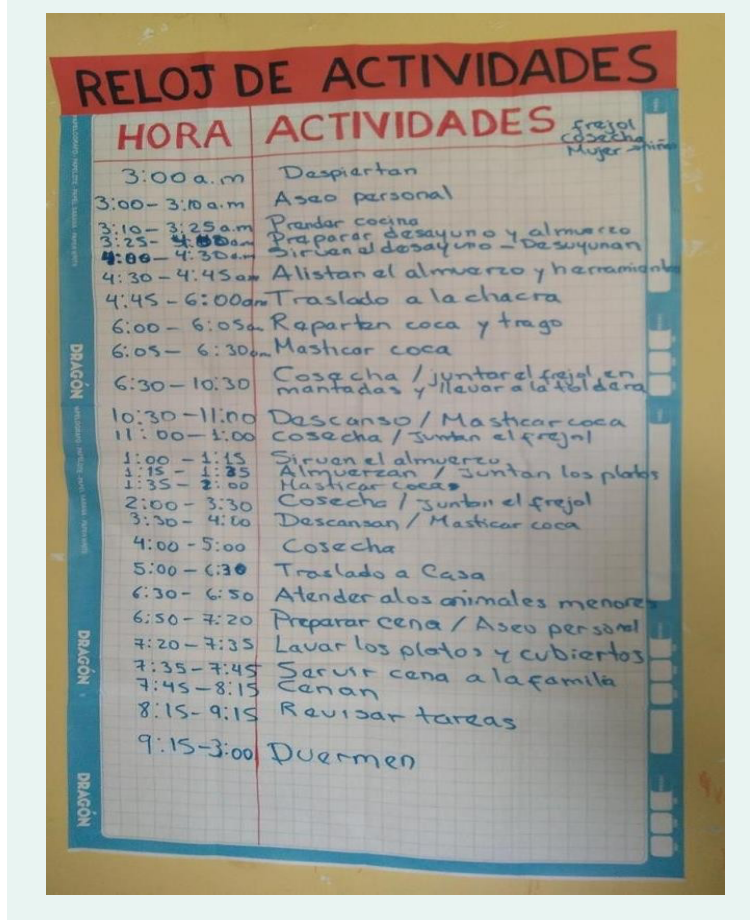 RELOJ DE ACTIVIDADES
HORA ACTIVIDADES
frejol
cosecha
Mujer - niña
3:00 a.m Despiertan
3:00 - 3:10 a.m Aseo personal
3:10 - 3:25 a.m Prender cocina
3:25 - 4:00 a.m Preparar desayuno y almuerzo
4:00 - 4:30 a.m Sirven el desayuno - Desayunan
4:30 - 4:45 am Alistan el almuerzo y herramientas
4:45 - 6:00 am Traslado a la chacra
6:00 - 6:05 a Reparten coca y trago
6:05 - 6:30 am Masticar coca
6:30 - 10:30 Cosecha / juntar el frejol en
mantadas y llevar a la toldera
10:30 - 11:00 Descanso / Masticar coca
11:00 - 1:00 Cosecha / Juntan el frejol
1:00 - 1:15 Sirven el almuerzo
1:15 - 1:35 Almuerzan / Juntan los platos
1:35 - 2:00 Masticar coca
2:00 - 3:30 Cosecha / Juntan el frejol
3:30 - 4:00 Descansan / Masticar coca
4:00 - 5:00 Cosecha
5:00 - 6:30 Traslado a Casa
6:30 - 6:50 Atender a los animales menores
6:50 - 7:20 Preparar cena / Aseo personal
7:20 - 7:35 Lavar los platos y cubiertos
7:35 - 7:45 Servir cena a la familia
7:45 - 8:15 Cenan
8:15 - 9:15 Revisar tareas
9:15 - 3:00 Duermen
DRAGÓN
DRAGÓN
DRAGÓN